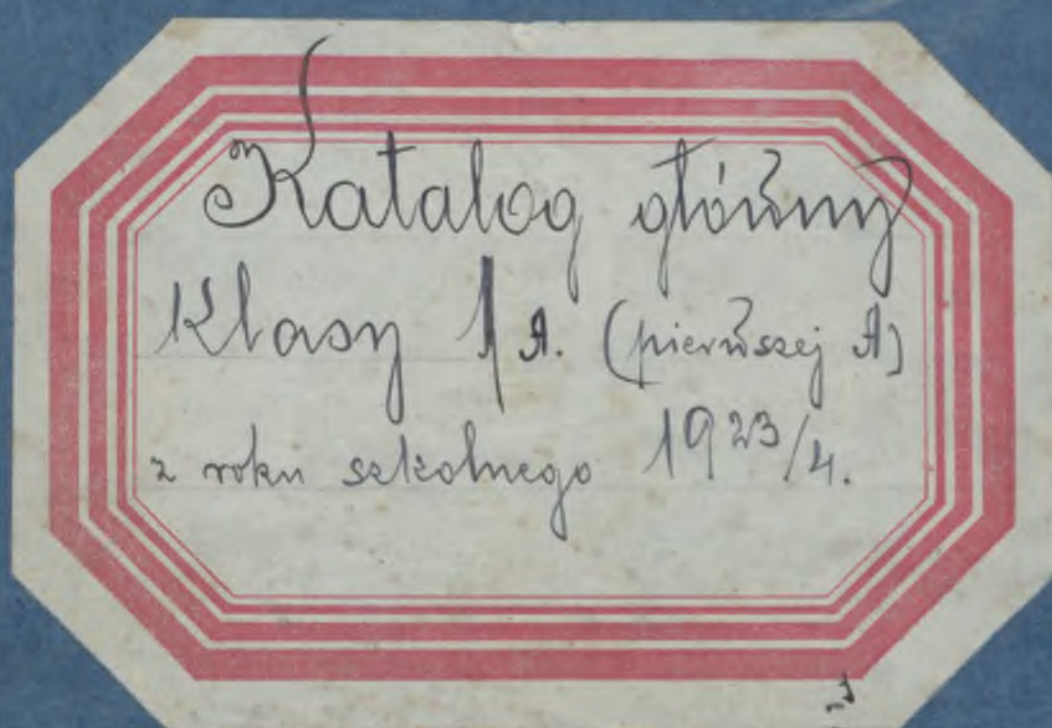 Katalog główny
Klasy 1 A. (pierwszej A)
z roku szkolnego 1923/4.